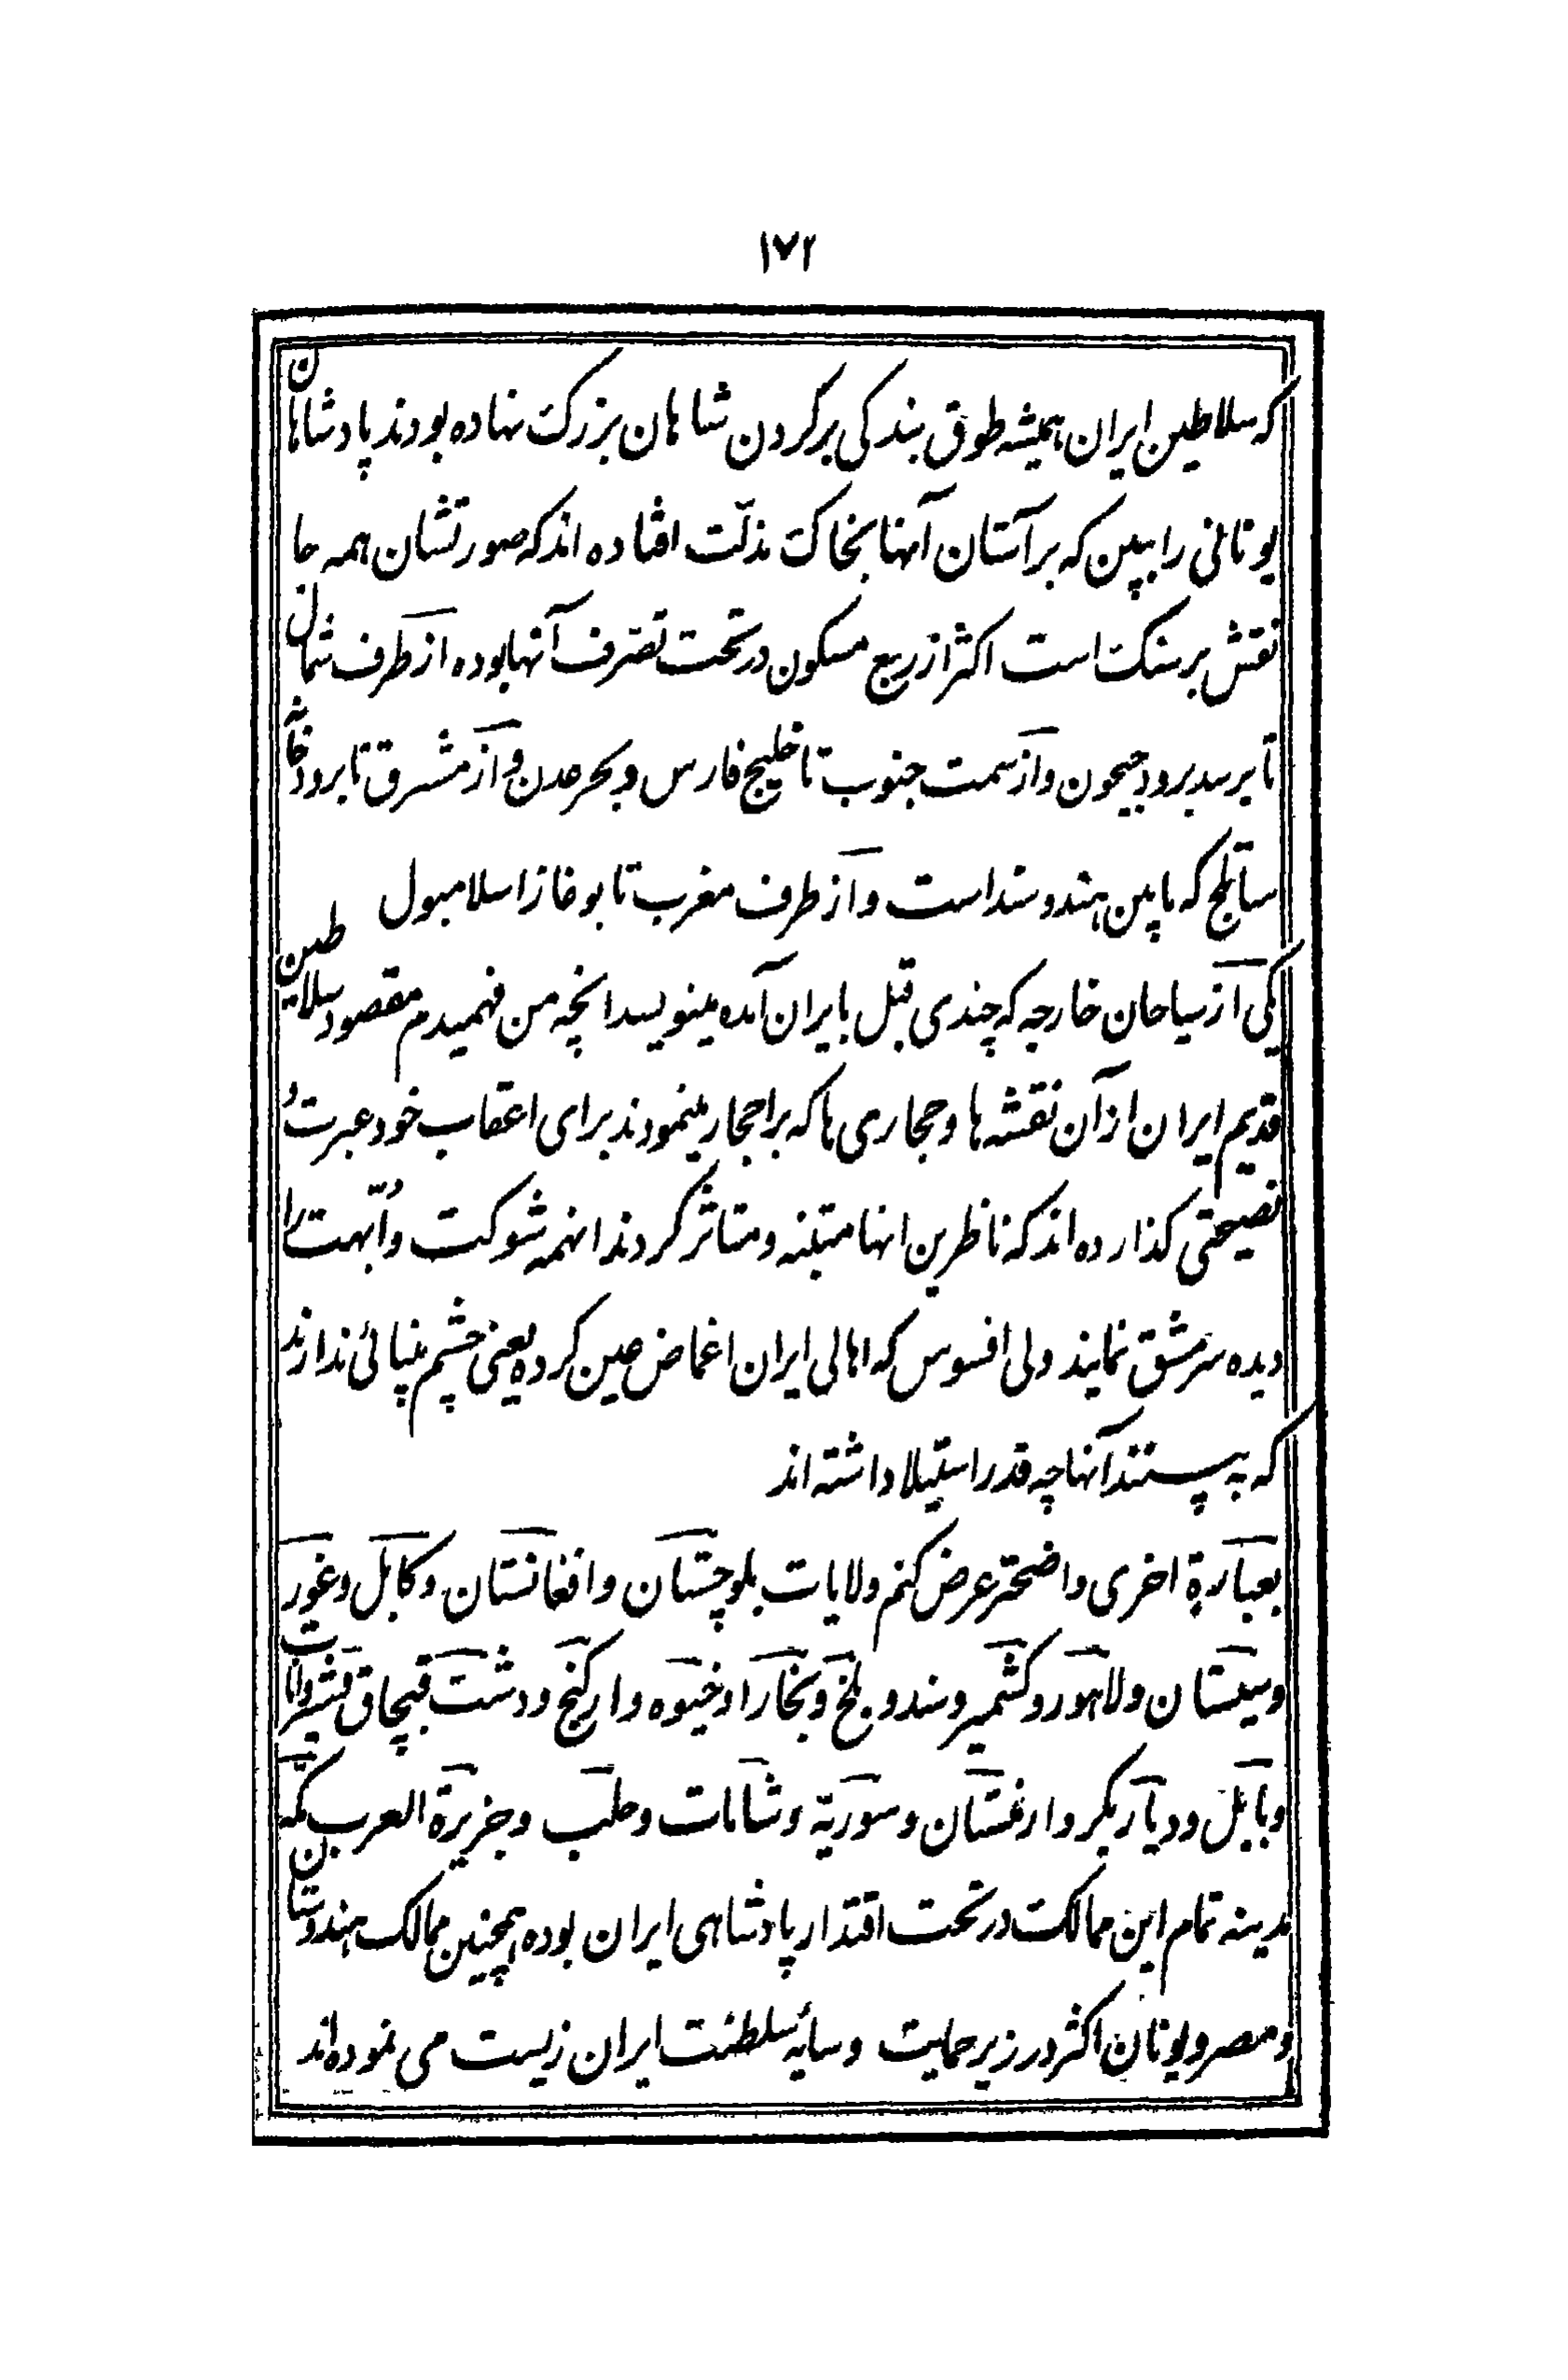 ۱۷۲
که سلاطین ایران همیشه طوق بندکی برکردن شاهان بزرک نهاده بودند پادشاهان
یونانی را ببین که بر آستان آنها بخاک مذلّت افتاده اند که صورتشان همه جا
نقش بر سنک است اکثر از ربع مسکون در تحت تصرّف آنها بوده از طرف شمال
تا برسد برود جیحون و از سمت جنوب تا خلیج فارس و بحر عدن و از مشرق تا برودخانه
ساتلج که مابین هند و سند است و از طرف مغرب تا بوغاز اسلامبول
یکی از سیاحان خارجه که چندی قبل بایران آمده مینویسد انچه من فهمیدم مقصود سلاطین
قدیم ایران از آن نقشه ها و حجاری ها که بر احجار مینمودند برای اعقاب خود عبرت و
نصیحتی کذارده اند که ناظرین انها متبنه و متاثر کردند انهمه شوکت و اُبّهت را
دیده سرمشق نمایند ولی افسوس که اهالی ایران اغماض عین کرده یعنی چشم بینائی ندارند
که به پسنند آنها چه قدر استیلا داشته اند
بعبارة اخری واضحتر عرض کنم ولایات بلوچستان و افغانستان و کابل و غور
و سیستان و لاهور و کشمیر و سند و بلخ و بخارا و خیوه و ارکنج و دشت قبچاق و شیروانات
و بابل و دیار بکر و ارمنستان و سوریة و شامات و حلب و جزیرة العرب مکه
مدینه تمام این ممالک در تحت اقتدار پادشاهی ایران بوده همچنین ممالک هندوستان
و مصر و یونان اکثر در زیر حمایت و سایهٔ سلطنت ایران زیست می نموده اند